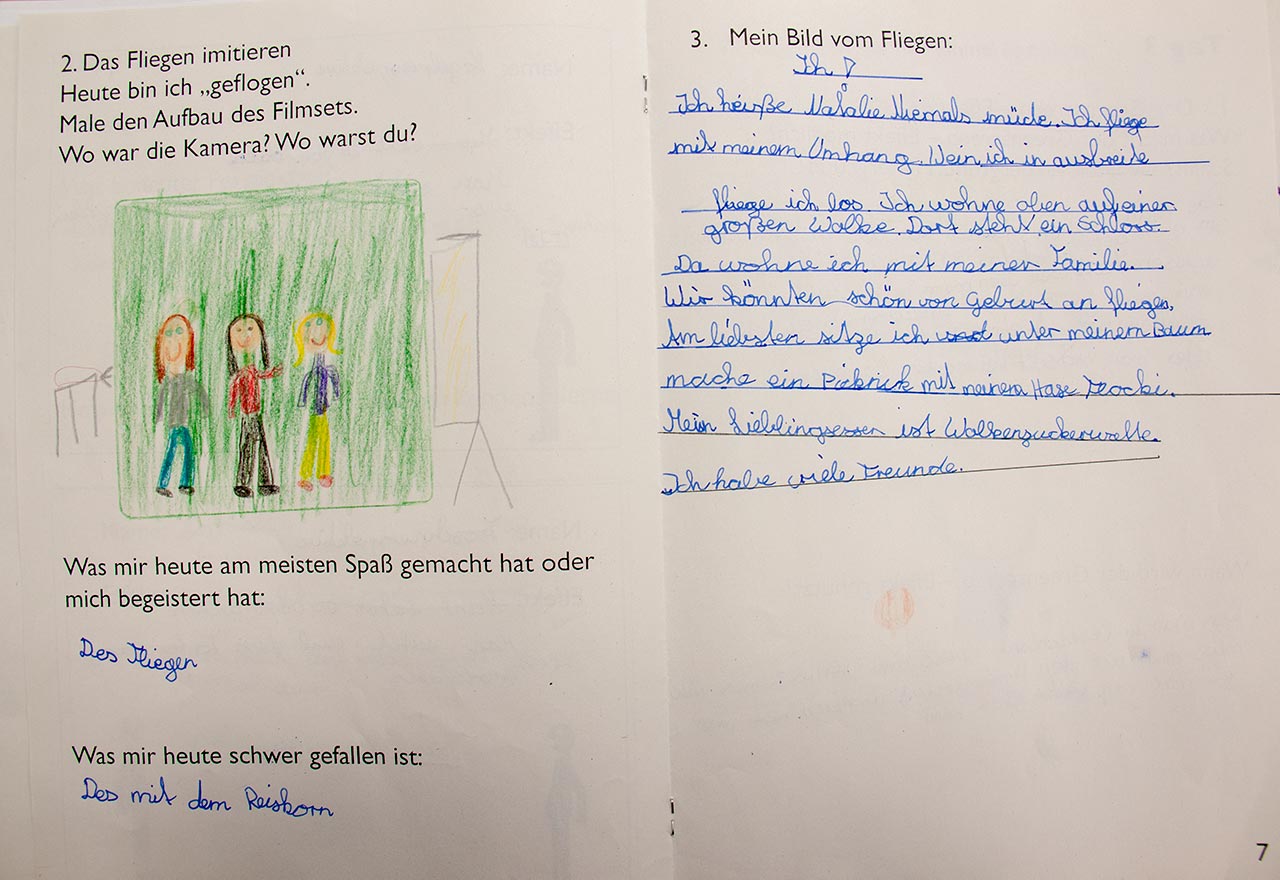 2. Das Fliegen imitieren
Heute bin ich „geflogen“.
Male den Aufbau des Filmsets.
Wo war die Kamera? Wo warst du?
Was mir heute am meisten Spaß gemacht hat oder
mich begeistert hat:
Des Fliegen
Was mir heute schwer gefallen ist:
Des mit dem Reiskorn
3. Mein Bild vom Fliegen:
Ich
Ich heiße Natalie Niemals müde. Ich fliege
mit meinem Umhang. Wein ich in ausbreite
fliege ich los. Ich wohne oben auf einer
großen Wolke. Dort steht ein Schloss.
Da wohne ich mit meiner Familie.
Wir könnten schön von Geburt an fliegen.
Am liebsten sitze ich unter meinem Baum
mache ein Picknick mit meinem Hase Flocki.
Mein Lieblingsessen ist Wolkenzuckerwatte.
Ich habe viele Freunde.
7